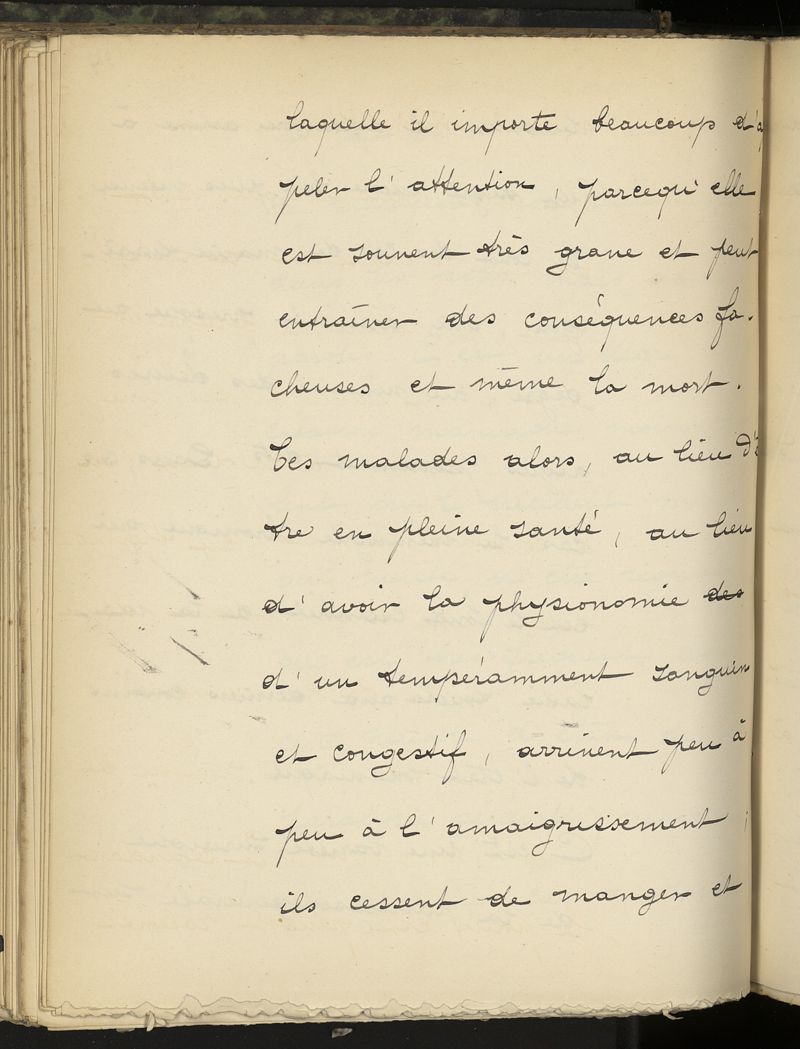 laquelle il importe beaucoup d'ap
peler l'attention, parcequ'elle
est souvent très grave et peut
entraîner des conséquences fa-
cheuses et même la mort.
Ces malades alors, au lieu d'ê
tre en pleine santé, au lieu
d'avoir la physionomie des
d'un tempéramment sanguin
et congestif, arrivent peu à
peu à l'amaigrissement,
ils cessent de manger et